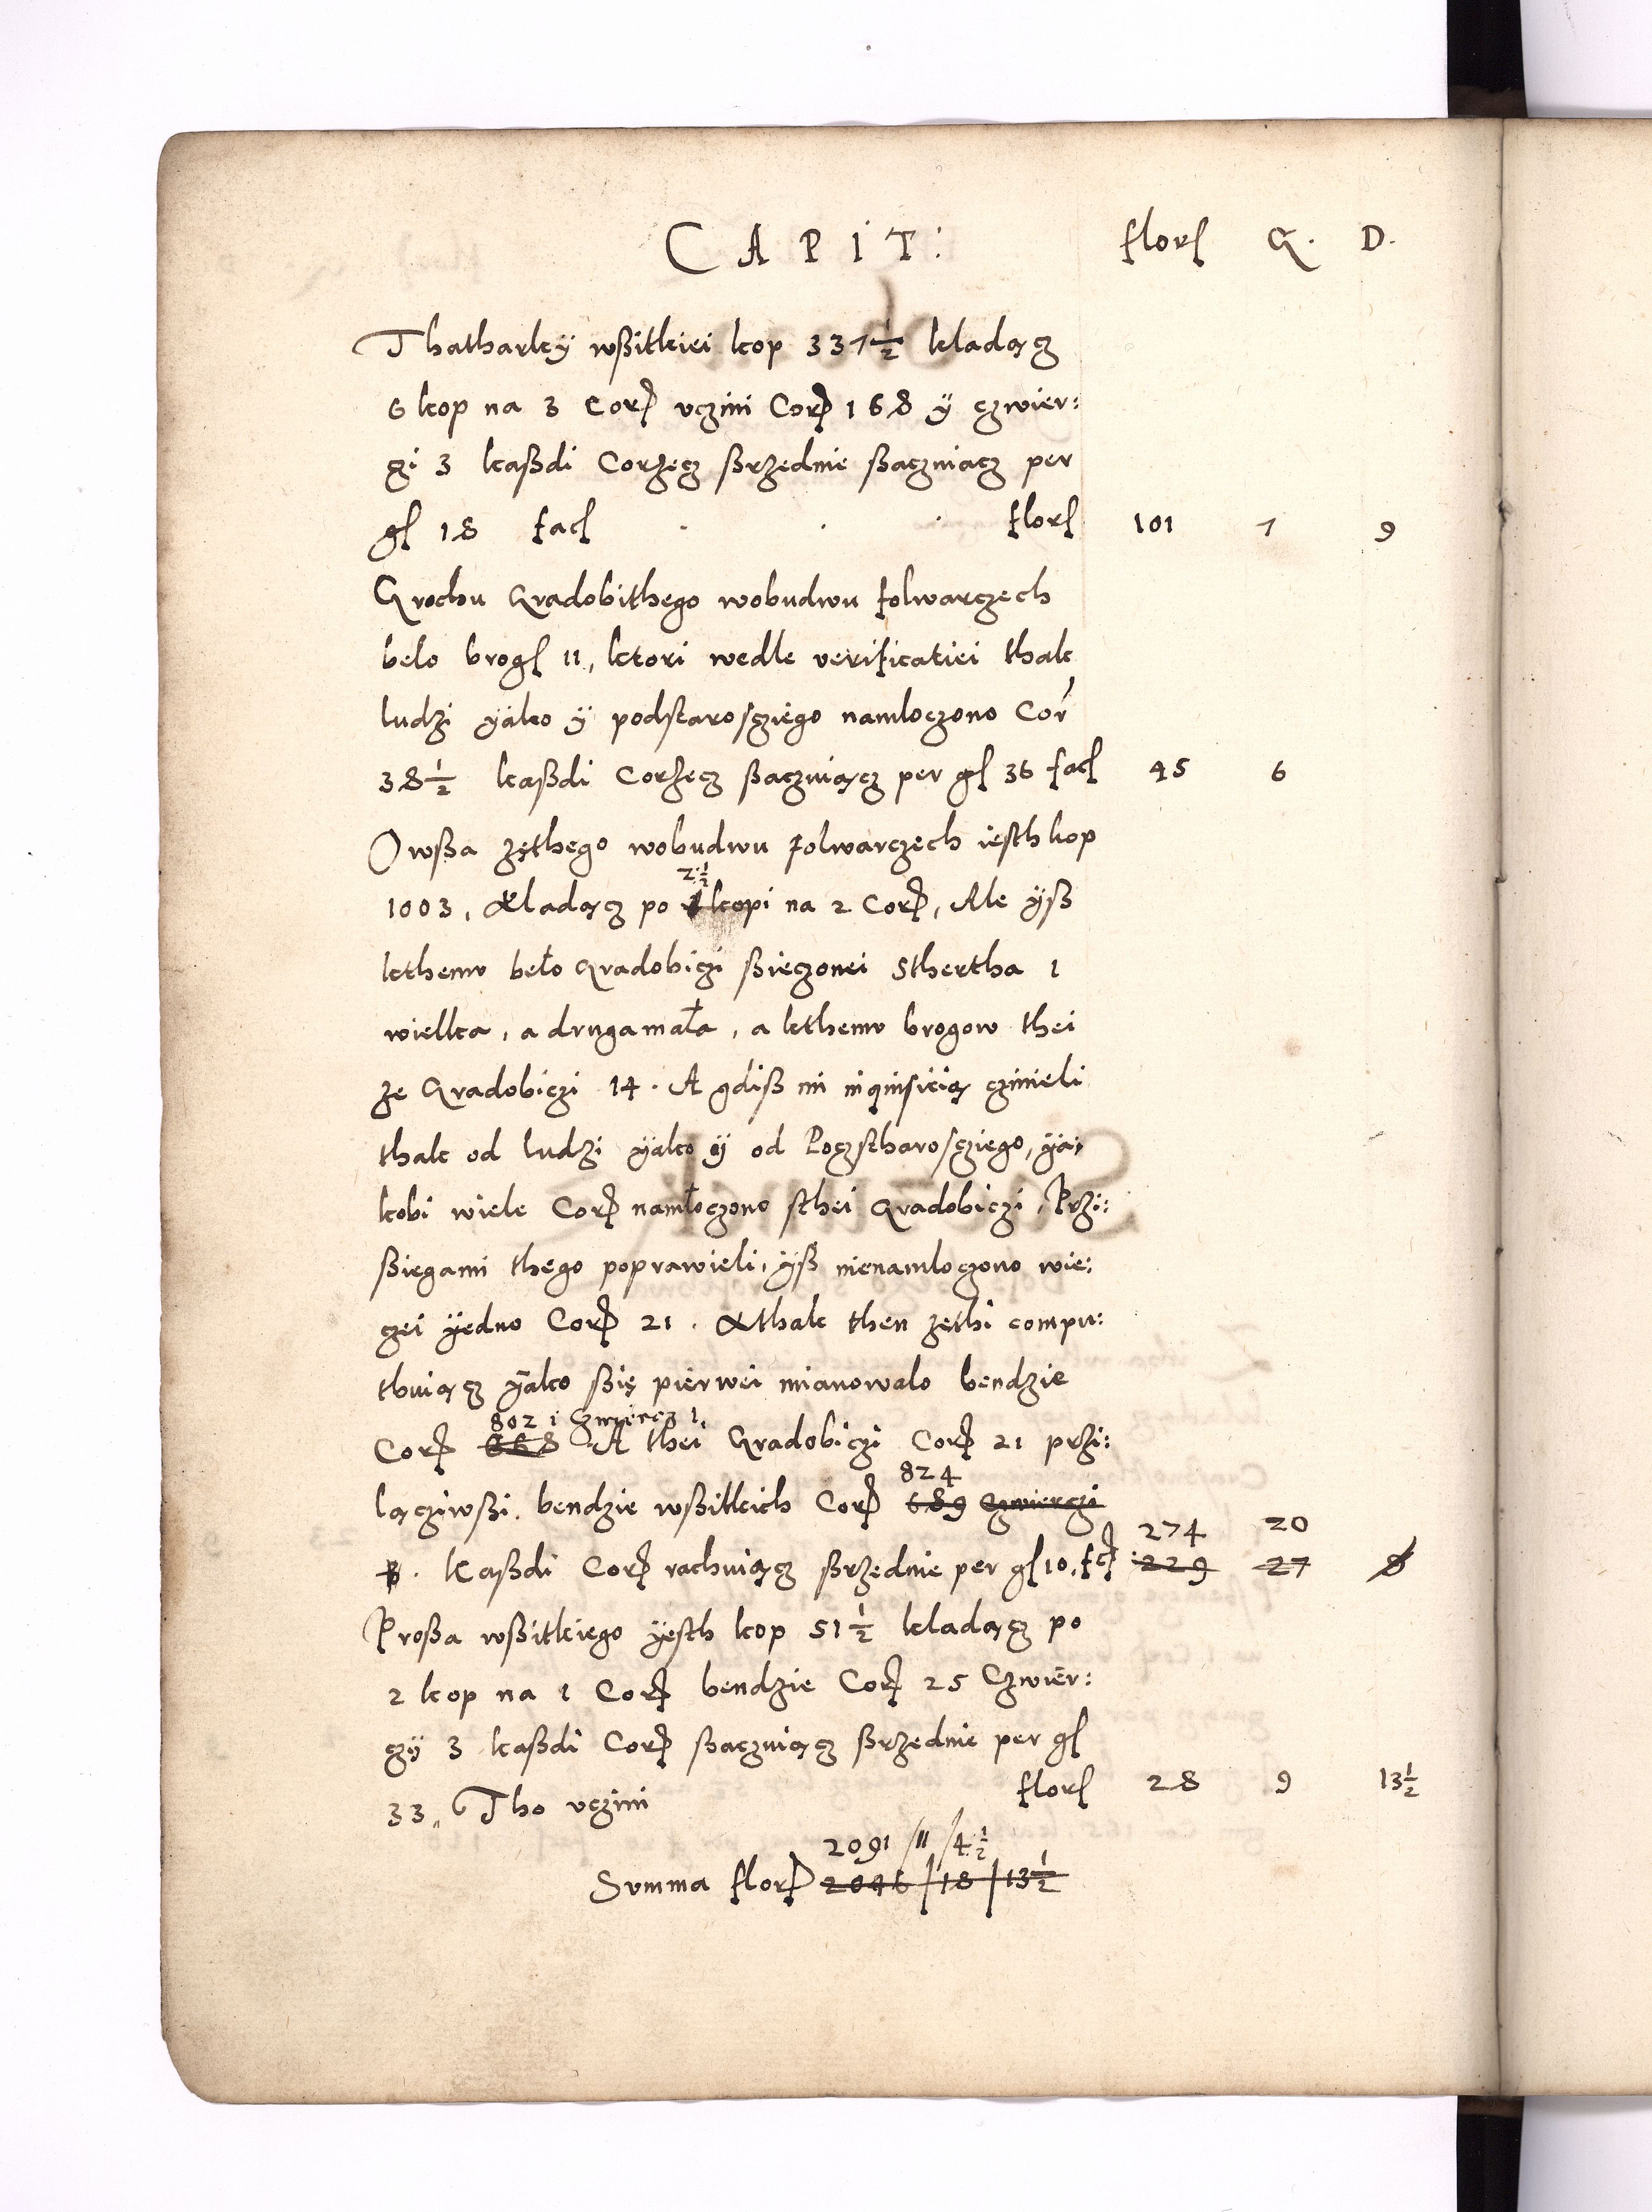 CAPIT: flor[um] G. D.
Thatharky wßitkiei kop 337½ kladącz
6 kop na 3 Cor[um] vczini Cor[um] 168 ÿ czwier:
czi 3 kaßdi Corzecz ßrzednie ßaczuiacz per
g[rossos] 18 fac[it] . . . flor[um] 101 7 9
Grochu Gradobithego wobudwu folwarczech
belo brog[ow] 11, ktori wedle verificatiei thak
ludzi ÿako ÿ podstarosczięgo namloczono Cor
38½ kaßdi Corzecz ßaczuiącz per g[rossos] 36 fac[it] 45 6
Owßa zęthego wobudwu folwarczech iesth kop
1003, kladącz po 2½ kopi na 2 Cor[um], Ale ÿß
kthemv beło Gradobiczi ßieczonei Sthertha 1
wielka, a druga mała, a kthemv brogow thei
ze Gradobiczi 14. A gdiß mi inquisicią czinieli
thak od ludzi ÿako ÿ od Poczstharosczięgo, ÿa:
kobi wiele Cor[um] namłoczono sthei Gradobiczi, Przi:
ßiegami thego poprawieli, ÿß nienamloczono wie:
czei ÿedno Cor[um] 21. Athak then zęthi compu:
thuiącz ÿako ßię pierwei mianowalo bendzie
802 i Czwiercz 1,
Cor[um] 668 A thei Gradobiczi Cor[um] 21 przi:
824
ląciwßi, bendzie wßitkich Cor[um] 689 Czwierczi
274 20
3. Kaßdi Cor[um] rachuiącz ßrzednie per g[rossos] 10, f[a]c[it] 229 27 8
Proßa wßitkiego ÿesth kop 51½ kladącz po
2 kop na 1 Cor[um] bendzie Cor[um] 25 Czwier:
czÿ 3 kaßdi Cor[um] ßaczuiącz ßrzednie per g[rossos]
33, Tho vczini flor[um] 28 9 13½
2091 / 11 / 4½
Summa flor[um] 2046 / 18 / 13½